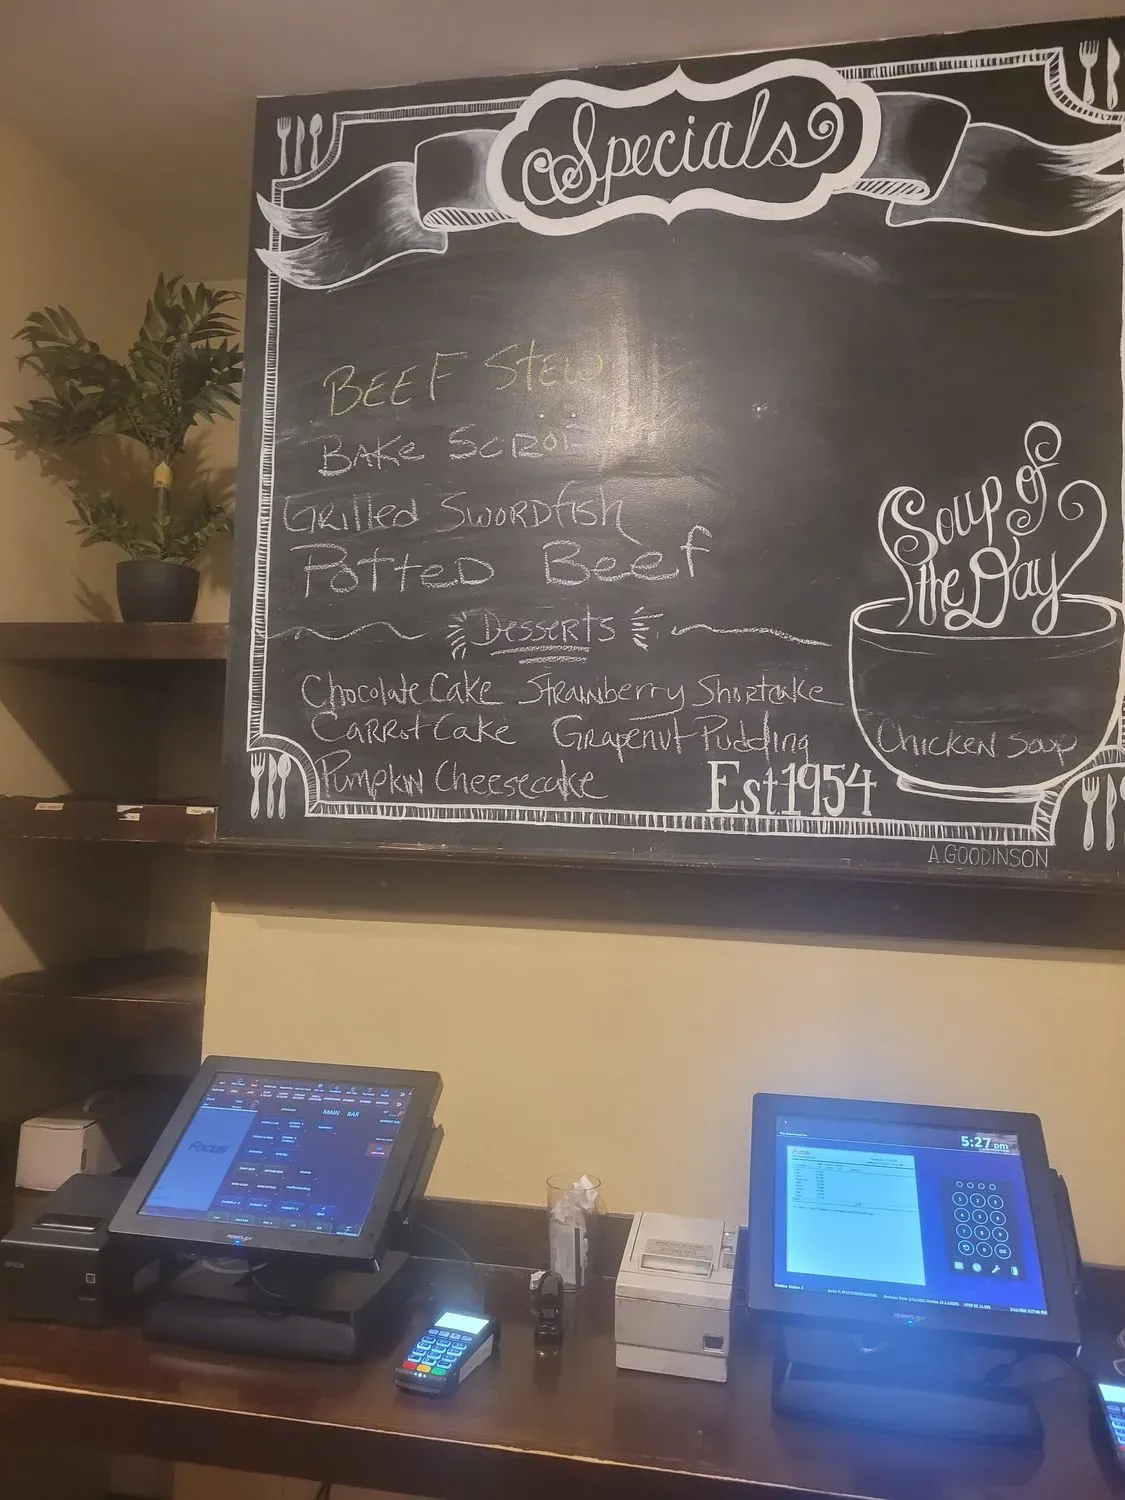 Specials
BEEF Stew
BAKe Scrod
Grilled Swordfish
Potted Beef
Desserts
Chocolate Cake Strawberry Shortcake
Carrot Cake Grapenut Pudding
Pumpkin Cheesecake
Soup of
the Day
Chicken Soup
Est.1954
A.GOODINSON
MAIN BAR
Focus
POSIFLEX
EPSON
5:27 pm
Focus
POSIFLEX